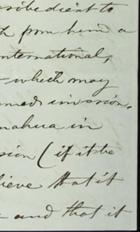 obedient to
from him a
international,
which may
med invasion,
nahua in
sion (if it be
lieve that it
and that it